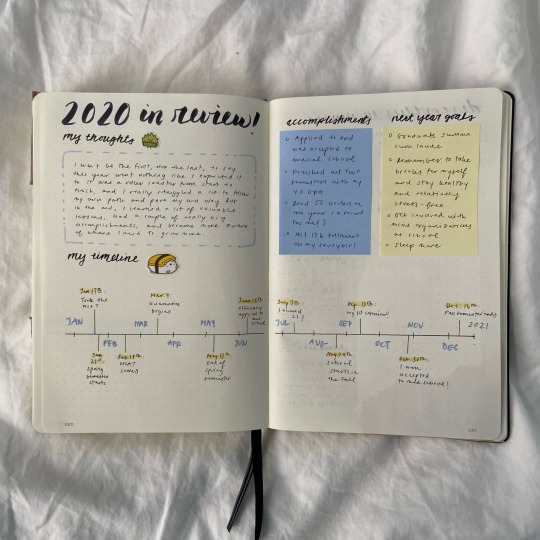 2020 in review!
my thoughts
I won't be the first, nor the last, to say
this year went nothing like I expected it
to. It was a roller coaster from start to
finish, and I really struggled a lot to follow
my own path and pave my own way. But
in the end, I learned a lot of valuable
lessons, had a couple of really big
accomplishments, and became more aware
of where I need to grow more.
my timeline
Jan 17th:
Took the
MCAT
Mar 9:
quarantine
begins
June 15th:
JAN
MAR
MAY
FEB
APR
JUN
Jan 21st:
spring
semester
starts
Feb 18th:
MCAT
scores
May 13th:
end of
spring
semester
accomplishments
Applied to and
was accepted to
medical school!
Finished my two
semesters with
my 4.0 GPA
Read 55 books in
one year (a record
for me!)
Hit 13k followers
on my studyblr!
next year goals
Graduate summa
cum laude
Remember to take
breaks for myself
and stay healthy
and relatively
stress-free
Get involved with
more organizations
at school
Sleep more
July 7th:
I turned
21!
Sep 18th:
my 1st interview!
Oct 16th:
JUL
SEP
NOV
2021
AUG
OCT
DEC
Aug 24th:
school
starts in
the fall
Oct 30th:
I am
accepted
to med school!